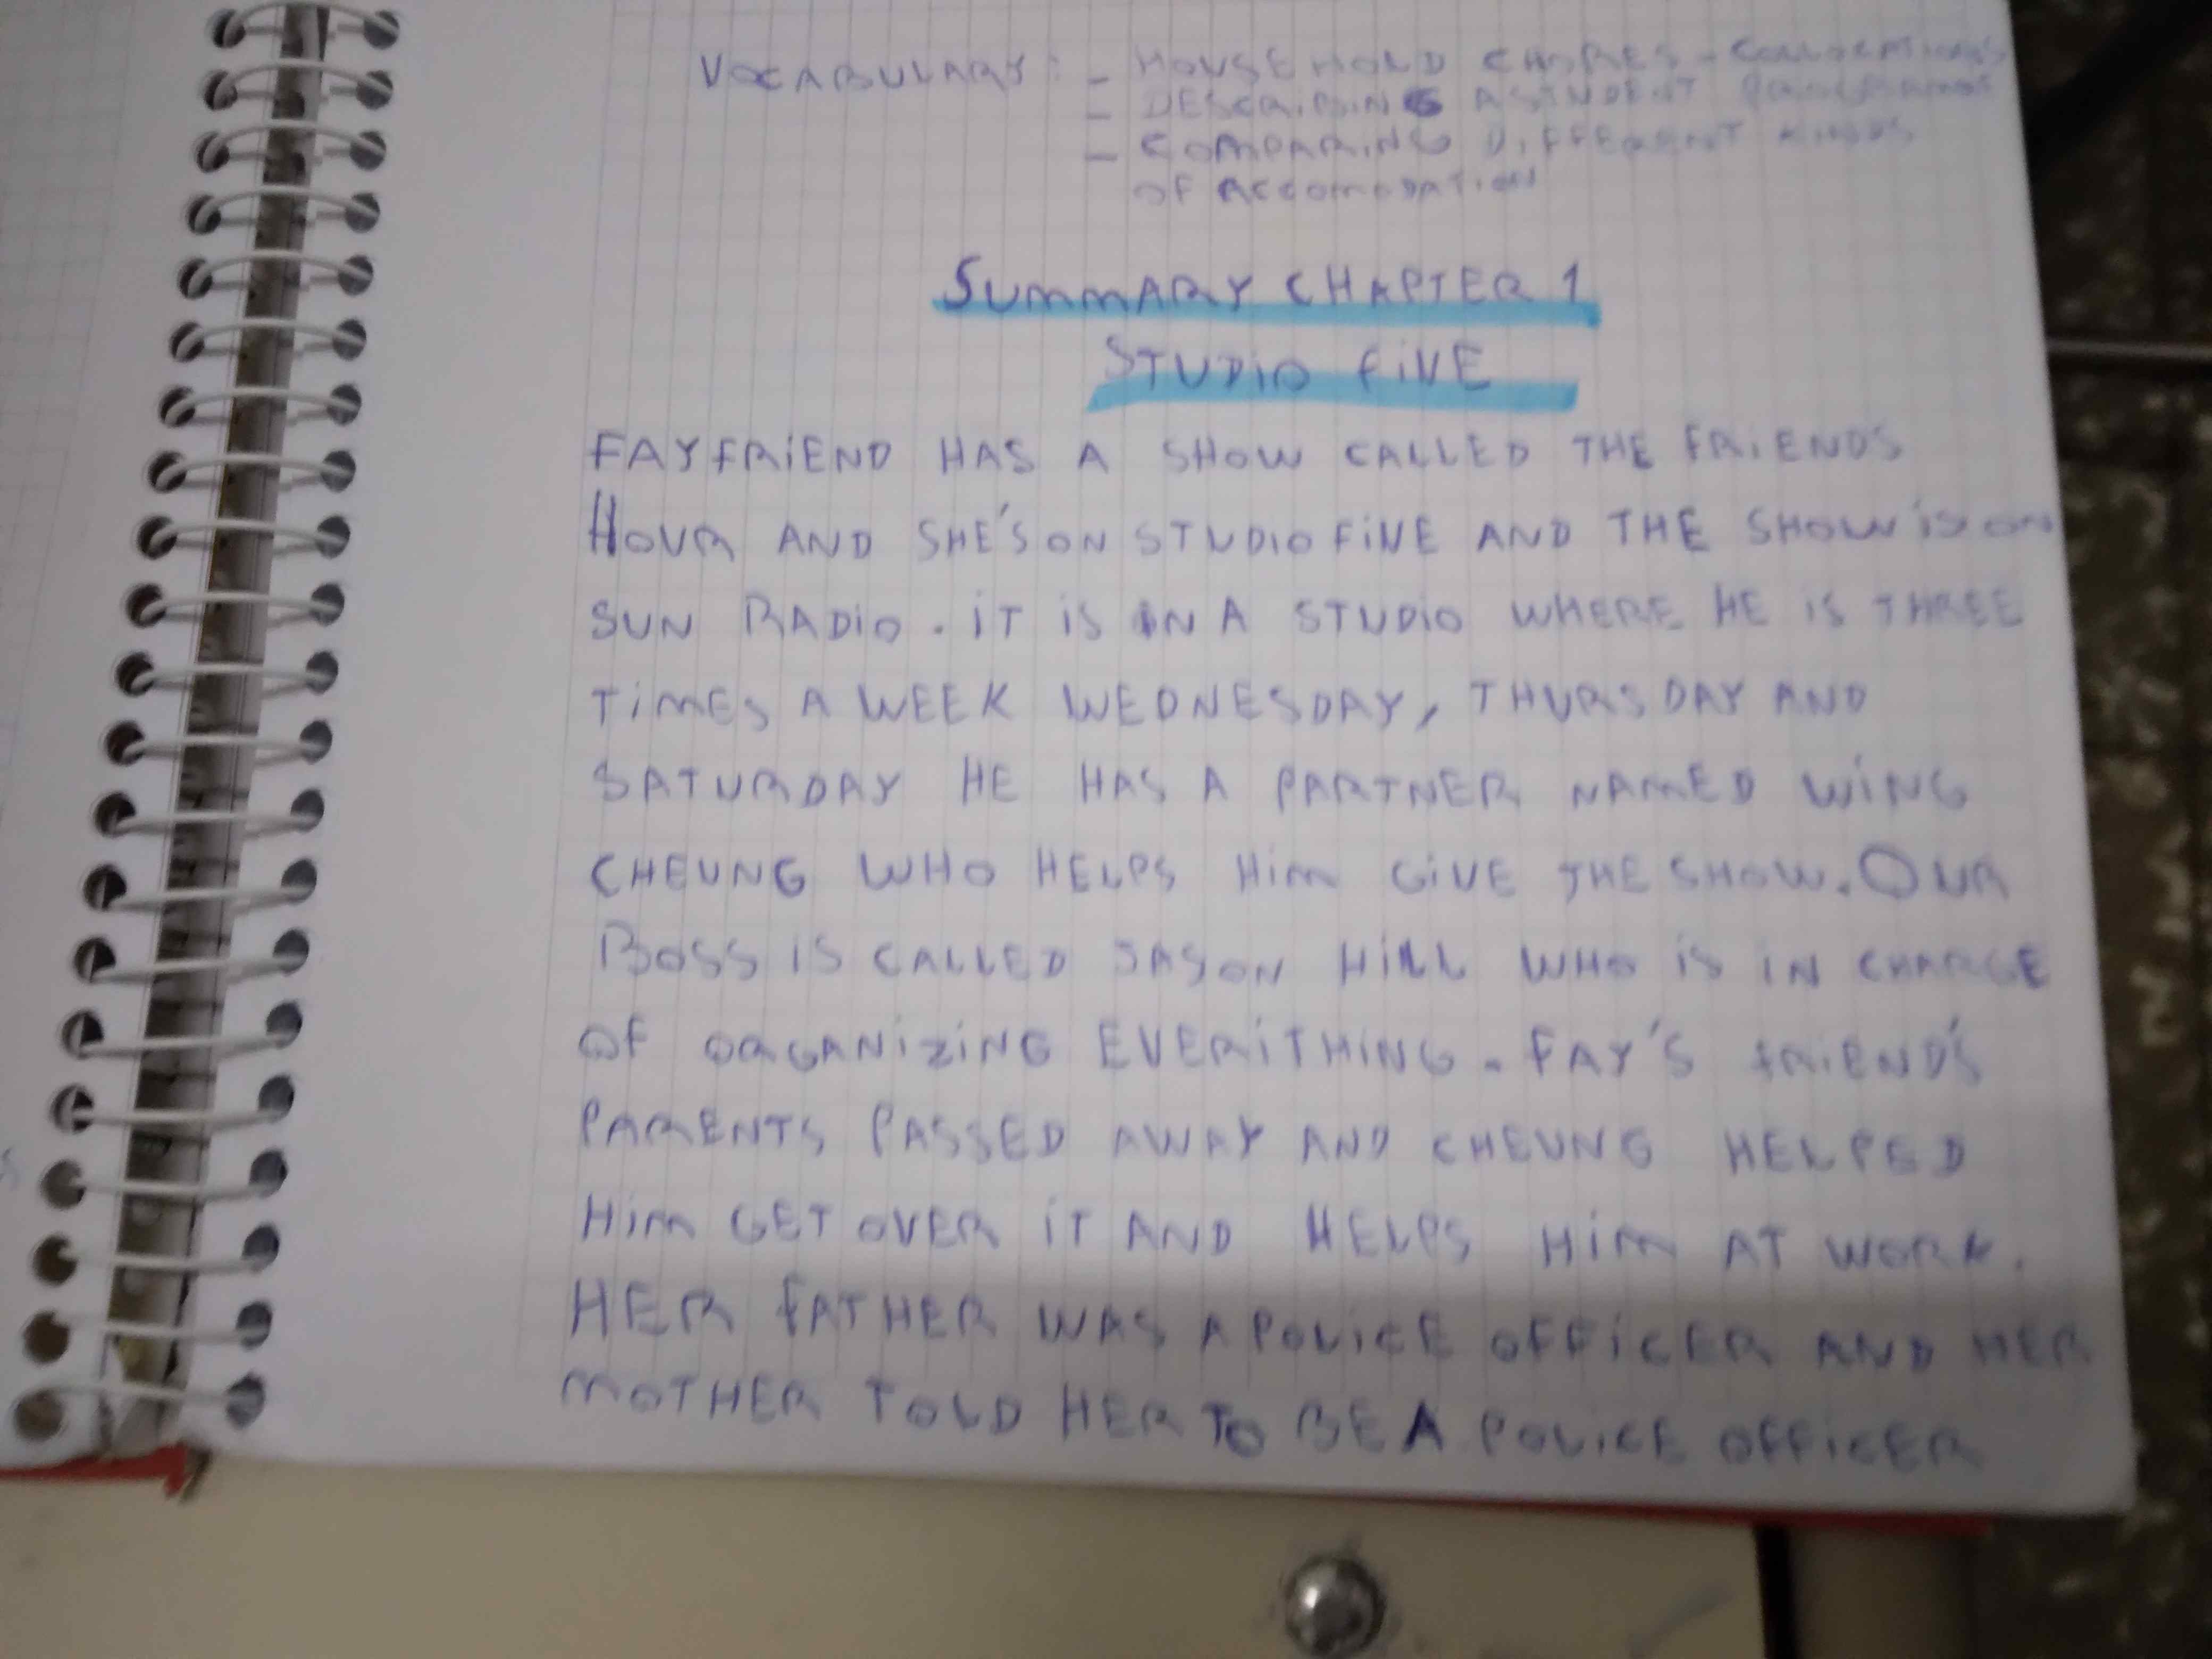 VOCABULARY: - HOUSE HOLD CHORES - COLLOCATIONS
- DESCRIBING A STUDENT
- COMPARING DIFFERENT KINDS
OF ACCOMODATION
SUMMARY CHAPTER 1
STUDIO FIVE
FAY FRIEND HAS A SHOW CALLED THE FRIENDS
HOUR AND SHE'S ON STUDIO FIVE AND THE SHOW IS ON
SUN RADIO. IT IS IN A STUDIO WHERE HE IS THREE
TIMES A WEEK WEDNESDAY, THURSDAY AND
SATURDAY HE HAS A PARTNER NAMED WING
CHEUNG WHO HELPS HIM GIVE THE SHOW. OUR
BOSS IS CALLED JASON HILL WHO IS IN CHARGE
OF ORGANIZING EVERITHING. FAY'S FRIEND'S
PARENTS PASSED AWAY AND CHEUNG HELPED
HIM GET OVER IT AND HELPS HIM AT WORK.
HER FATHER WAS A POLICE OFFICER AND HER
MOTHER TOLD HER TO BE A POLICE OFFICER